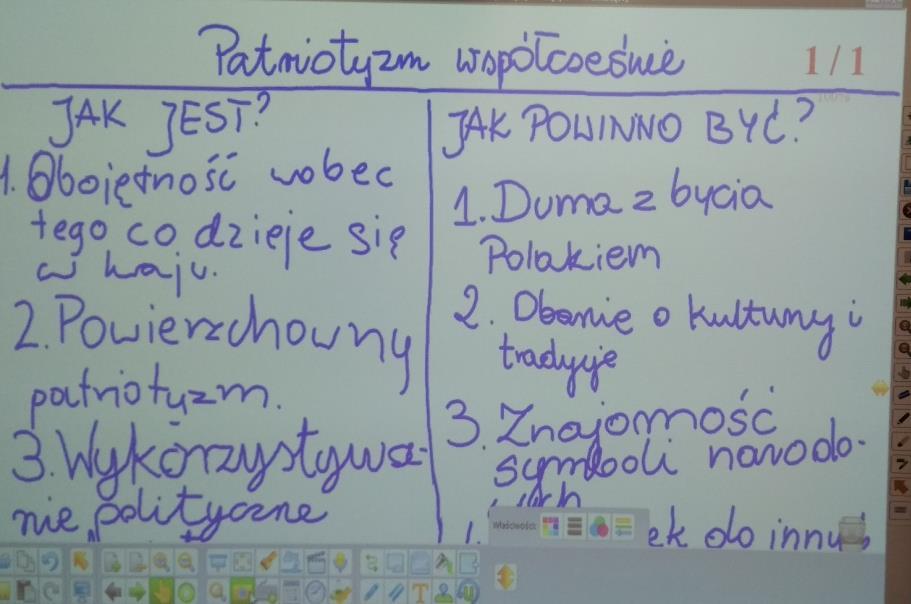 Patriotyzm współcześnie
1/1
100%
JAK JEST?
1. Obojętność wobec
tego co dzieje się
w kraju.
2. Powierzchowny
patriotyzm.
3. Wykorzystywa-
nie polityczne
JAK POWINNO BYĆ?
1. Duma z bycia
Polakiem
2. Dbanie o kultury i
tradycje
3. Znajomość
symboli narodo-
Właściwości:
ek do innych